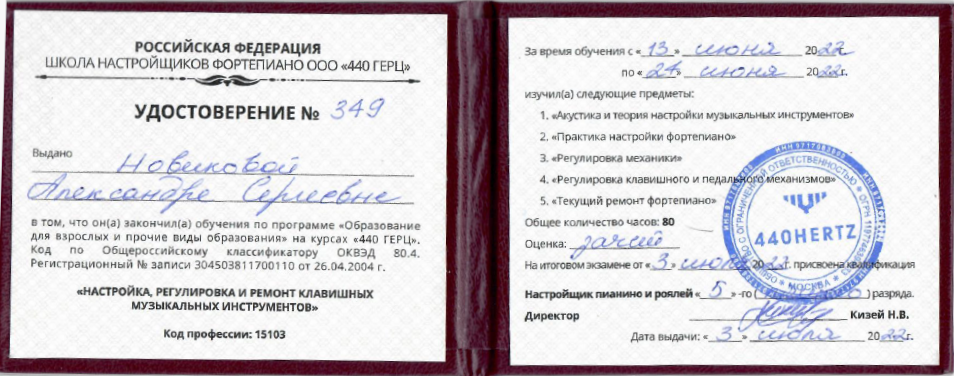 РОССИЙСКАЯ ФЕДЕРАЦИЯ
ШКОЛА НАСТРОЙЩИКОВ ФОРТЕПИАНО ООО «440 ГЕРЦ»
УДОСТОВЕРЕНИЕ № 349
Выдано Новиковой
Александре Сергеевне
в том, что он(а) закончил(а) обучения по программе «Образование
для взрослых и прочие виды образования» на курсах «440 ГЕРЦ».
Код по Общероссийскому классификатору ОКВЭД 80.4.
Регистрационный № записи 304503811700110 от 26.04.2004 г.
«НАСТРОЙКА, РЕГУЛИРОВКА И РЕМОНТ КЛАВИШНЫХ
МУЗЫКАЛЬНЫХ ИНСТРУМЕНТОВ»
Код профессии: 15103
За время обучения с «13» июня 2022
по «24» июня 2022г.
изучил(а) следующие предметы:
1. «Акустика и теория настройки музыкальных инструментов»
2. «Практика настройки фортепиано»
3. «Регулировка механики»
4. «Регулировка клавишного и педального механизмов»
5. «Текущий ремонт фортепиано»
Общее количество часов: 80
Оценка: зачёт
На итоговом экзамене от «3» июля 2022г. присвоена квалификация
Настройщик пианино и роялей «5»-го () разряда.
Директор Кизей Н.В.
Дата выдачи: «3» июля 2022г.
440HERTZ
МОСКВА